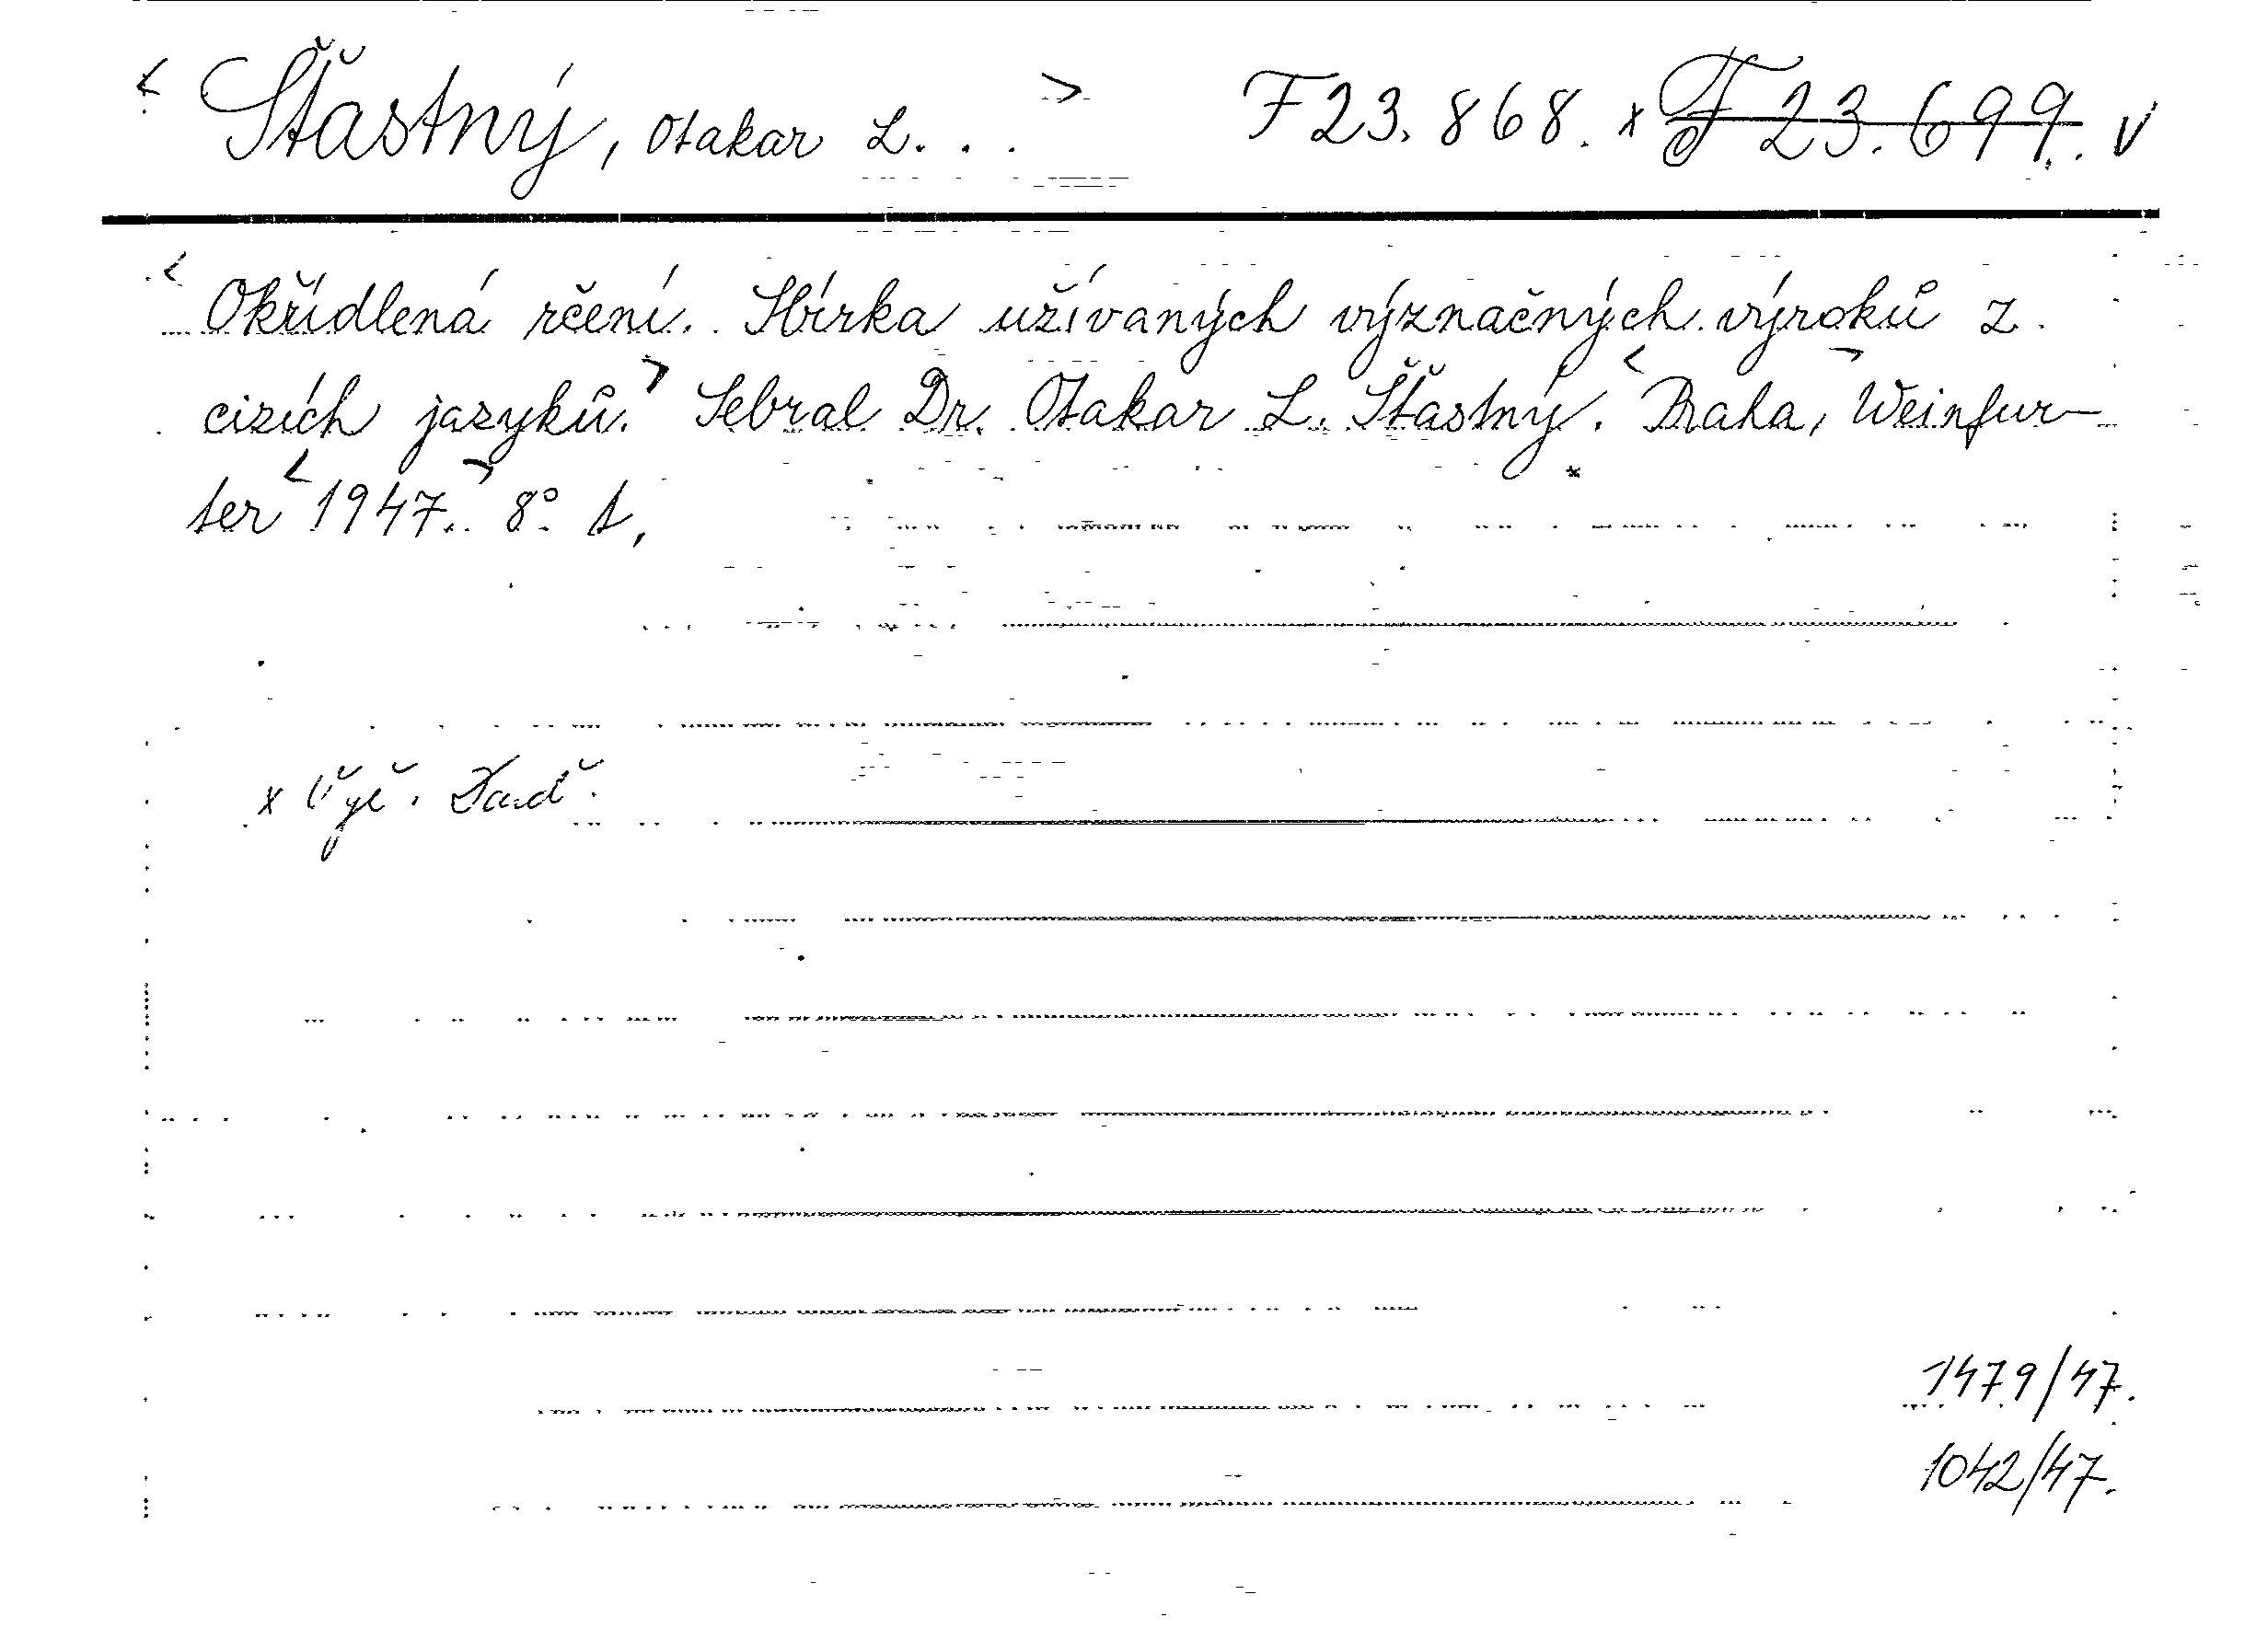 < Šťastný, Otakar L... > F 23.868. x F 23.699. v
< Okřídlená rčení. Sbírka užívaných význačných výroků z
cizích jazyků. > Sebral Dr. Otakar L. Šťastný. < Praha, > Weinfur-
ter < 1947. > 8° t.
x
1479/47.
1042/47.